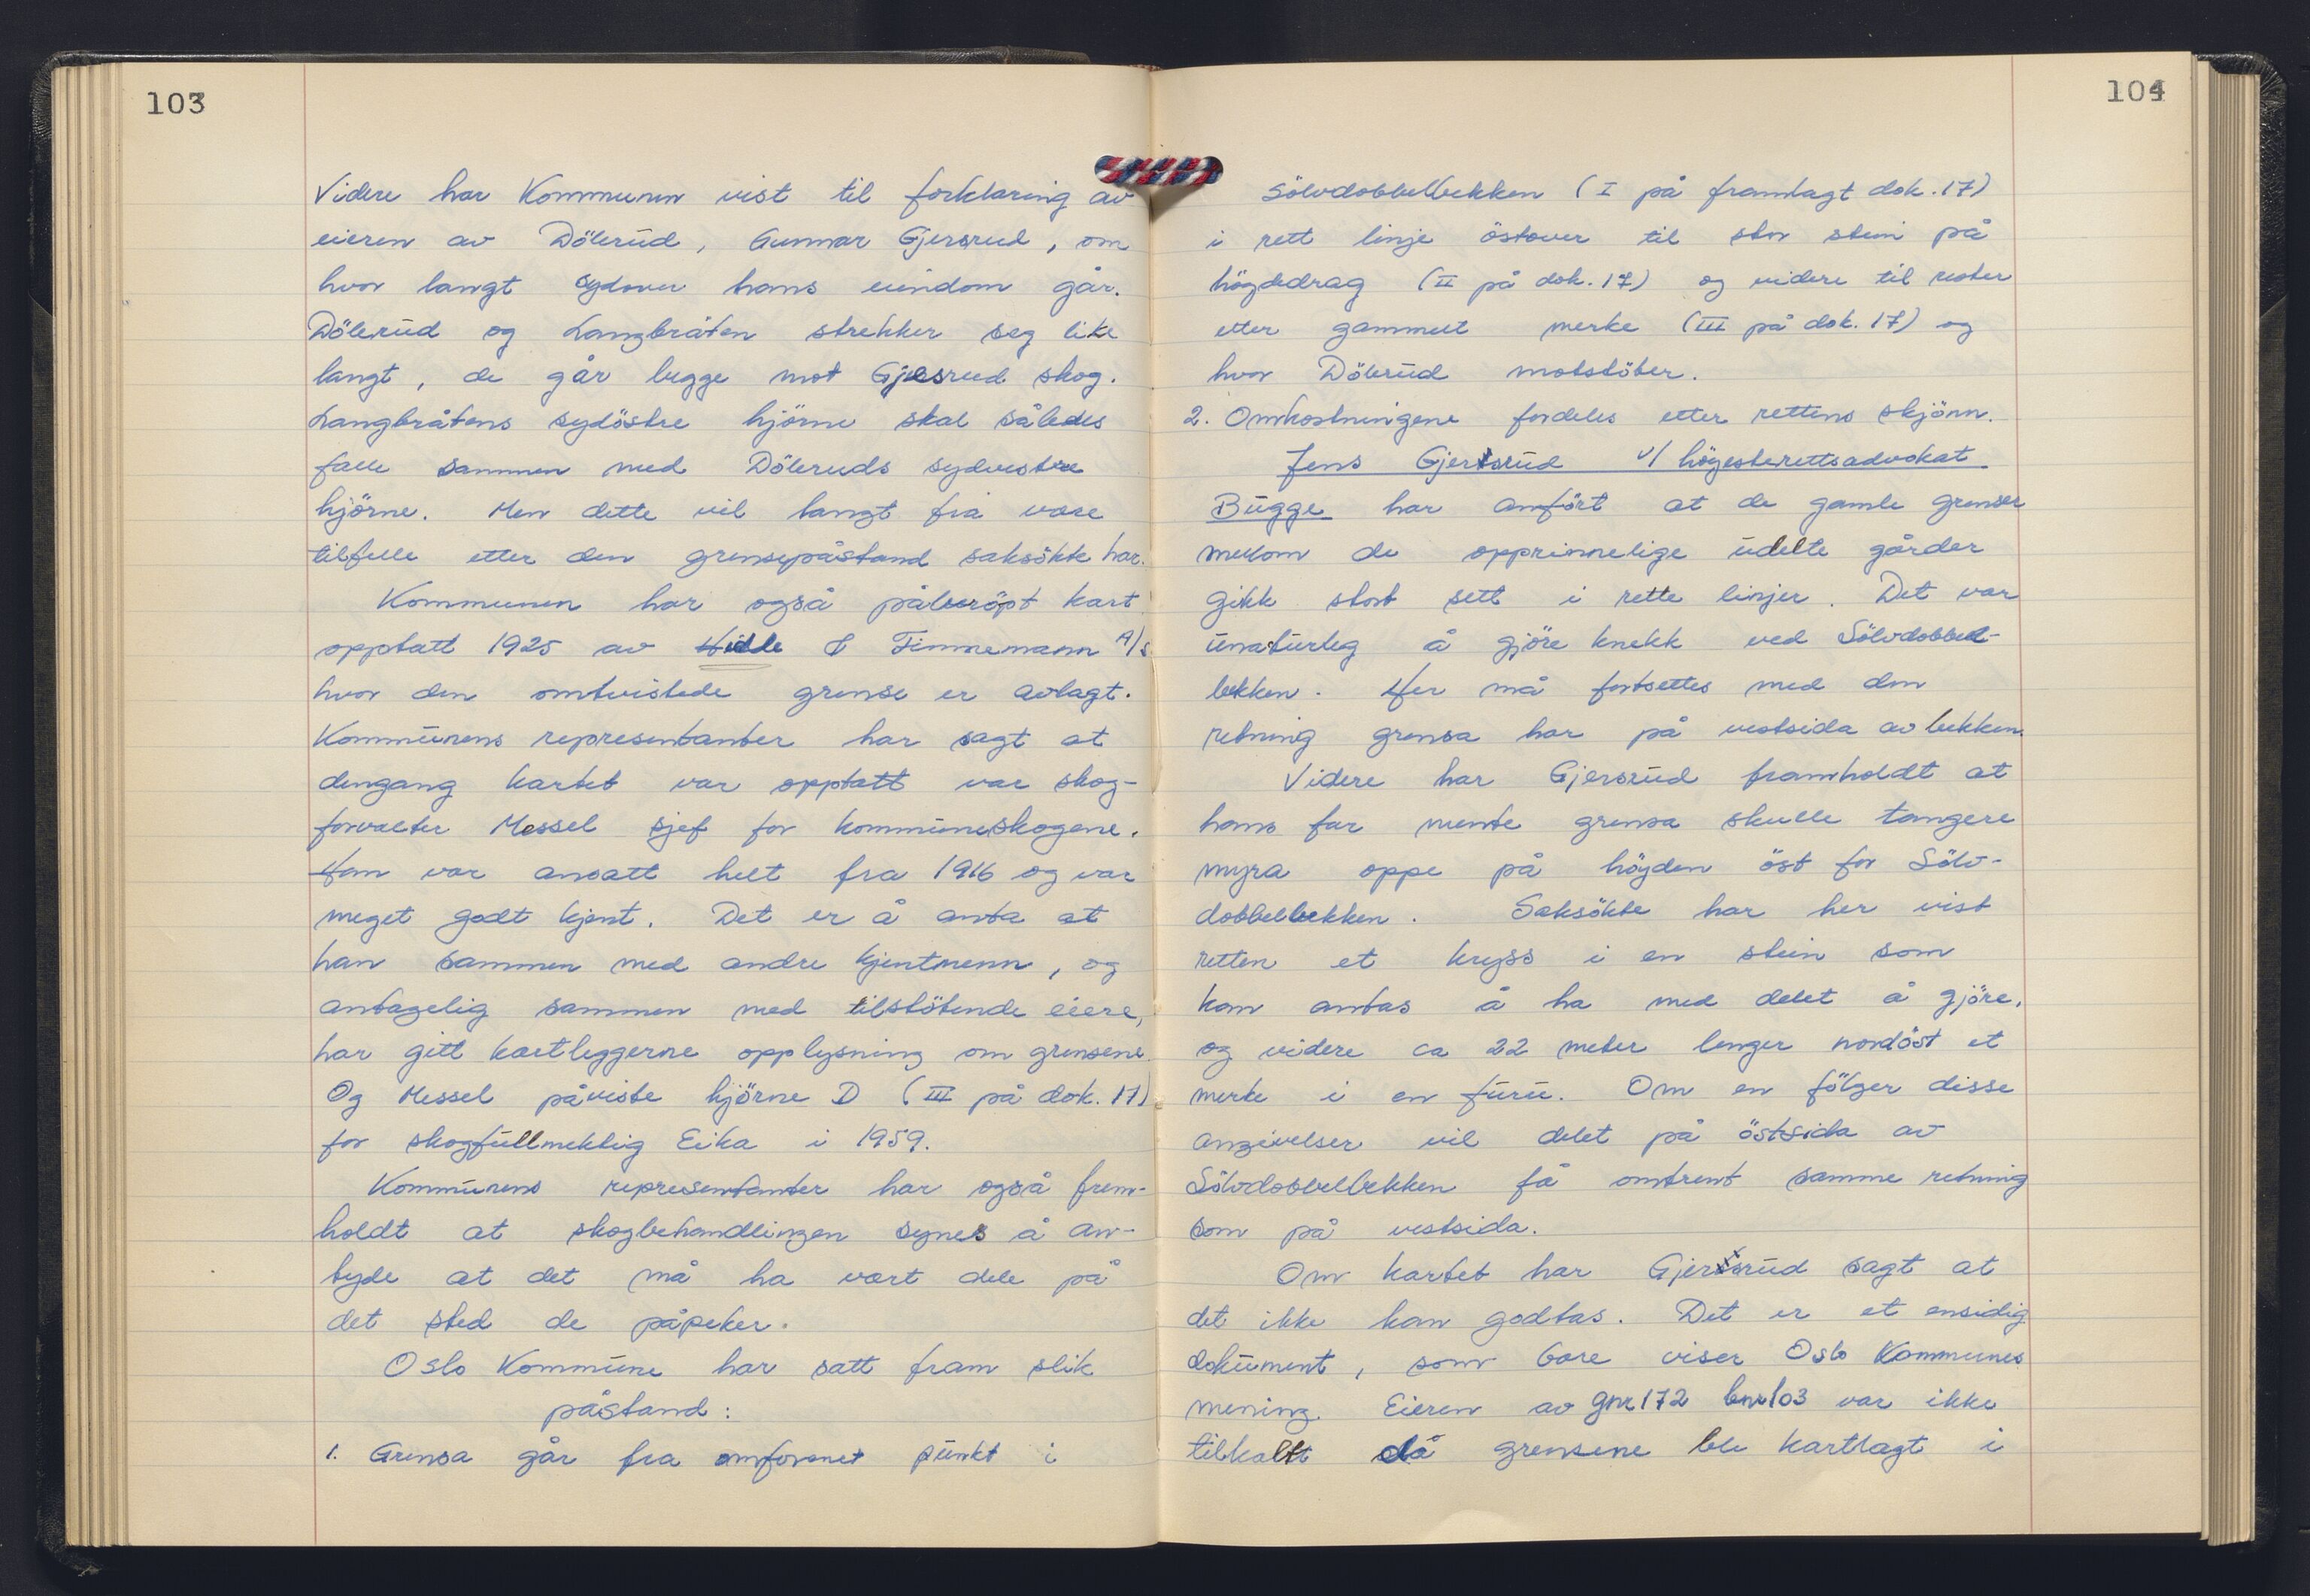 103
Videre har Kommunen vist til forklaring av
eieren av Dölerud, Gunnar Gjersrud, om
hvor langt sydover hans eiendom går.
Dölerud og Langbråten strekker seg like
langt, de går begge mot Gjersrud skog.
Langbråtens sydöstre hjörne skal således
falle sammen med Döleruds sydvestre
hjörne. Men dette vil langt fra være
tilfelle etter den grensepåstand saksökte har.
Kommunen har også påberopt kart
opptatt 1925 av Wideröe & Timmermann A/S
hvor den omtvistede grense er avlagt.
Kommunens representanter har sagt at
dengang kartet var opptatt var skog-
forvalter Messel sjef for kommuneskogene.
Han var ansatt helt fra 1916 og var
meget godt kjent. Det er å anta at
han sammen med andre kjentmenn, og
antagelig sammen med tilstötende eiere,
har gitt kartleggerne opplysning om grensene.
Og Messel påviste hjörne D (III på dok. 17)
for skogfullmektig Eika i 1959.
Kommunens representanter har også frem-
holdt at skogbehandlingen synes å an-
tyde at det må ha vært dele på
det sted de påpeker.
Oslo Kommune har satt fram slik
påstand:
1. Grensa går fra omforenet punkt i
104
Sölvdobbelbekken (I på framlagt dok. 17)
i rett linje östover til stor stein på
högdedrag (II på dok. 17) og videre til rester
etter gammelt merke (III på dok. 17) og
hvor Dölerud motstöter.
2. Omkostningene fordeles etter rettens skjönn.
Jens Gjersrud v/ höyesterettsadvokat
Bugge har anfört at de gamle grenser
mellom de opprinnelige udelte gårder
gikk stort sett i rette linjer. Det var
unaturlig å gjöre knekk ved Sölvdobbel-
bekken. Her må fortsettes med den
retning grensa har på vestsida av bekken.
Videre har Gjersrud framholdt at
hans far mente grensa skulle tangere
myra oppe på höyden öst for Sölv-
dobbelbekken. Saksökte har her vist
retten et kryss i en stein som
kan antas å ha med delet å gjöre,
og videre ca 22 meter lenger nordöst et
merke i en furu. Om en fölger disse
angivelser vil delet på östsida av
Sölvdobbelbekken få omtrent samme retning
som på vestsida.
Om kartet har Gjersrud sagt at
det ikke kan godtas. Det er et ensidig
dokument, som bare viser Oslo Kommunes
mening. Eieren av gnr 172 bnr 103 var ikke
tilkalt då grensene ble kartlagt i